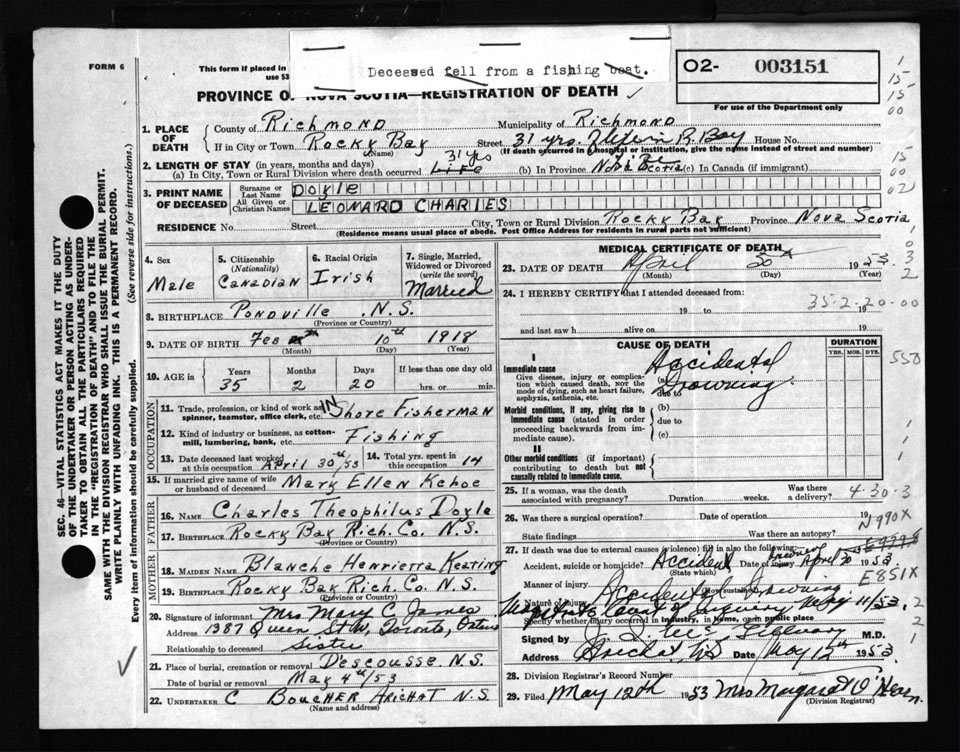 Deceased fell from a fishing boat.
FORM 6
This form if placed in
use $3
O2- 003151
For use of the Department only
PROVINCE OF NOVA SCOTIA—REGISTRATION OF DEATH ✓
1. PLACE OF DEATH
County of Richmond Municipality of Richmond
If in City or Town Rocky Bay Street 31 yrs. R. Bay House No.
(Name) (If death occurred in a hospital or institution, give the name instead of street and number)
2. LENGTH OF STAY (in years, months and days)
(a) In City, Town or Rural Division where death occurred 31 yrs Life (b) In Province Life Nova Scotia (c) In Canada (if immigrant)
3. PRINT NAME OF DECEASED
Surname or Last Name DOYLE
All Given or Christian Names LEONARD CHARLES
RESIDENCE No. Street City, Town or Rural Division Rocky Bay Province Nova Scotia
(Residence means usual place of abode. Post Office Address for residents in rural parts not sufficient)
4. Sex Male
5. Citizenship (Nationality) Canadian
6. Racial Origin Irish
7. Single, Married, Widowed or Divorced (write the word) Married
8. BIRTHPLACE Pondville N.S.
(Province or Country)
9. DATE OF BIRTH Feb 10th 1918
(Month) (Day) (Year)
10. AGE in Years 35 Months 2 Days 20 If less than one day old hrs. or min.
OCCUPATION
11. Trade, profession, or kind of work as spinner, teamster, office clerk, etc. IN Shore Fisherman
12. Kind of industry or business, as cotton-mill, lumbering, bank, etc. Fishing
13. Date deceased last worked at this occupation April 30th/53
14. Total yrs. spent in this occupation 14
15. If married give name of wife or husband of deceased Mary Ellen Kehoe
FATHER
16. Name Charles Theophilus Doyle
17. Birthplace Rocky Bay Rich. Co. N.S.
(Province or Country)
MOTHER
18. Maiden Name Blanche Henrietta Keating
19. Birthplace Rocky Bay Rich. Co. N.S.
(Province or Country)
20. Signature of informant Mrs Mary C James
Address 1387 Queen St W, Toronto, Ontario
Relationship to deceased Sister
21. Place of burial, cremation or removal Descousse. N.S.
Date of burial or removal May 4th/53
22. UNDERTAKER C Boucher Arichat N.S.
(Name and address)
MEDICAL CERTIFICATE OF DEATH
23. DATE OF DEATH April 30th 1953
(Month) (Day) (Year)
24. I HEREBY CERTIFY that I attended deceased from:
19 to 19
and last saw h alive on 19
CAUSE OF DEATH DURATION
YRS. MOS. DYS.
I
Immediate cause
Give disease, injury or complication which caused death, not the mode of dying, such as heart failure, asphyxia, asthenia, etc.
(a) Accidental Drowning
due to
Morbid conditions, if any, giving rise to immediate cause (stated in order proceeding backwards from immediate cause).
(b)
(c)
II
Other morbid conditions (if important) contributing to death but not causally related to immediate cause.
25. If a woman, was the death associated with pregnancy? Duration weeks. Was there a delivery?
26. Was there a surgical operation? Date of operation 19
State findings Was there an autopsy?
27. If death was due to external causes (violence) fill in also the following:
Accident, suicide or homicide? Accident Date of injury April 30 1953
(State which)
Manner of injury
(How sustained)
Nature of injury Accidental Drowning
Court of Inquiry May 11/53
Specify whether injury occurred in industry, in home, or in public place
Signed by M.D.
Address Arichat, NS Date May 12th 1953
28. Division Registrar's Record Number
29. Filed May 12th 1953 Mrs Margaret O'Hearn.
(Division Registrar)
SEC. 46- VITAL STATISTICS ACT MAKES IT THE DUTY
OF THE UNDERTAKER OR PERSON ACTING AS UNDER-
TAKER TO OBTAIN ALL THE PARTICULARS REQUIRED
IN THE "REGISTRATION OF DEATH" AND TO FILE THE
SAME WITH THE DIVISION REGISTRAR WHO SHALL ISSUE THE BURIAL PERMIT.
WRITE PLAINLY WITH UNFADING INK. THIS IS A PERMANENT RECORD.
Every item of information should be carefully supplied. (See reverse side for instructions.)
1
15
15
00
15
00
02
1
0
3
2
35-2-20-00
550
1
1
1
4-30-3
N990X
E851X
2
2
1